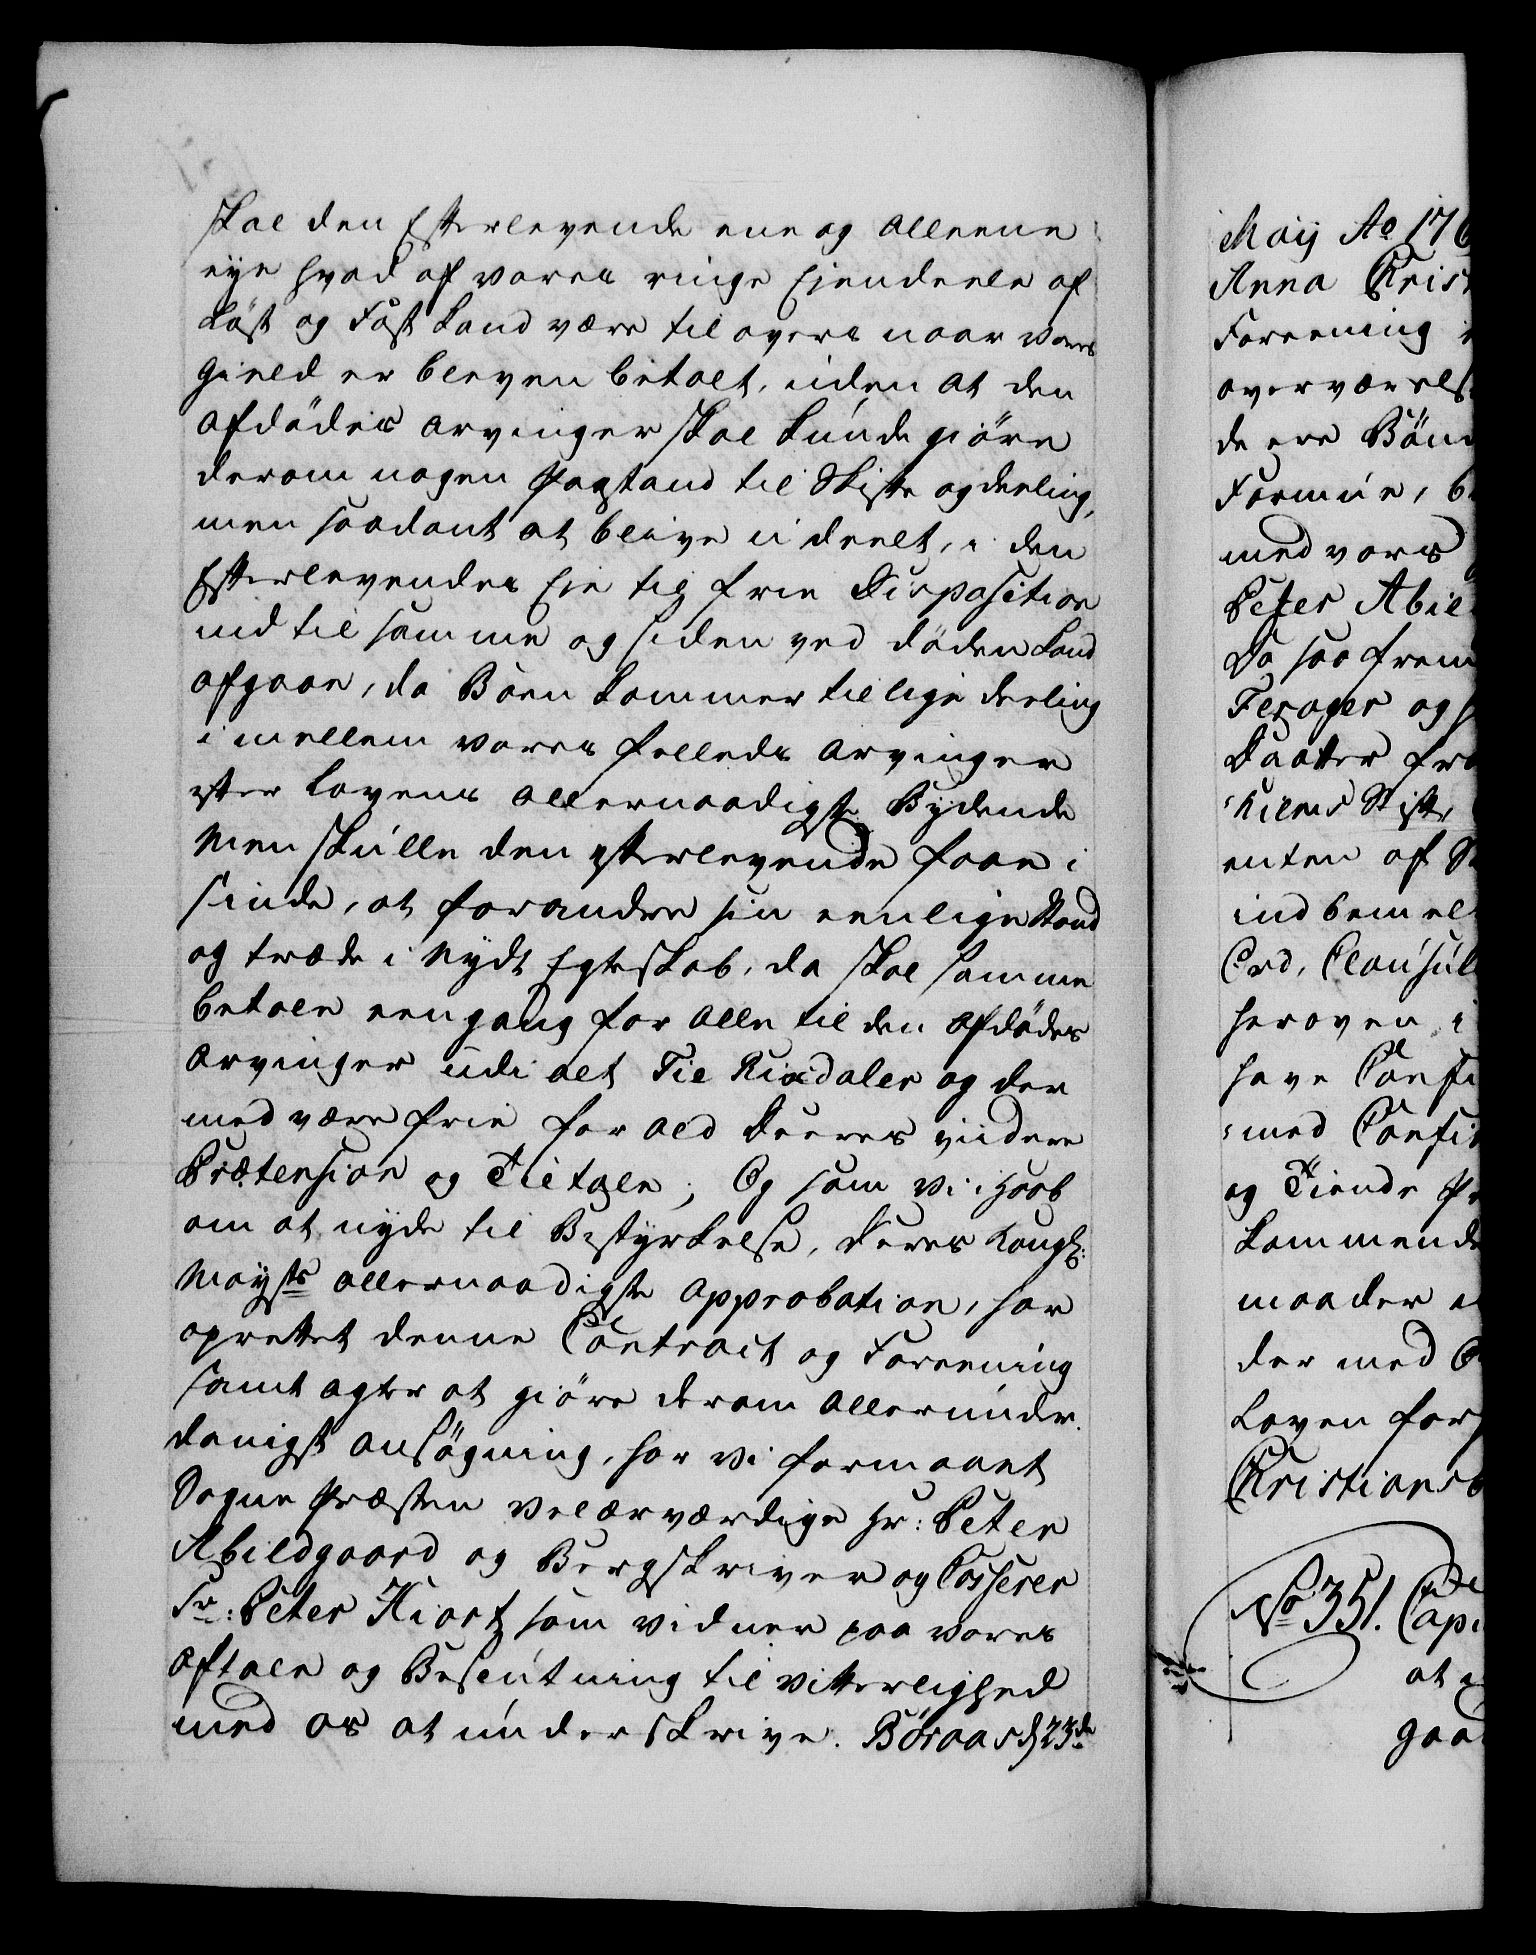 skal den Efterlevende ene og alleene
eye hvad af vores ringe Ejendeele af
Løst og Fast kand være til overs naar vores
Gield er bleven betalt, uden at den
afdødes arvinger skal kunde giøre
derom nogen Paastand til Skifte og deeling,
men saadant at blive u deelt, i den
Efterlevendes Eje til frie Disposition
ind til samme og siden ved døden kand
afgaae, da Boen kommer til lige deeling
i mellem vores felleds arvinger
efter Lovens allernaadigste Bydende
Men skulle den efterlevende faae i
sinde, at forandre sin eenlige Stand
og træde i Nydt Egteskab, da skal samme
betale een gang for alle til den afdødes
arvinger udi alt Tie Rixdaler og der
med være frie for ald Deeres viidere
Prætension og Tiltale; Og som vi i Haab
om at nyde til Bestyrkelse, Deres Kongl:
Mayts allernaadigste approbation, har
oprettet denne Contract og Foreening
samt agter at giøre derom allerunder
danigst ansøgning, har vi formaaet
Sogne Præsten velærværdige Hr: Peter
Abildgaard og Bergskriver og Casserer
Sr: Peter Hiort som vidner paa vores
aftale og Beslutning til vitterlighed
med os at underskrive. Røraas d 23de
Maij Ao 176
Anna Chris
Foreening
overværels
de ere Bønd
Formue, b
med vores
Peter Abil
Da saa frem
Ferager og
Daatter fr
enten af S
ind bemel
Ord, Clausul
her oven i
have Confi
med Confir
og Tiende P
kommende
maader
der med
Loven for
Christiansb
No 351. Copi
at
gaa